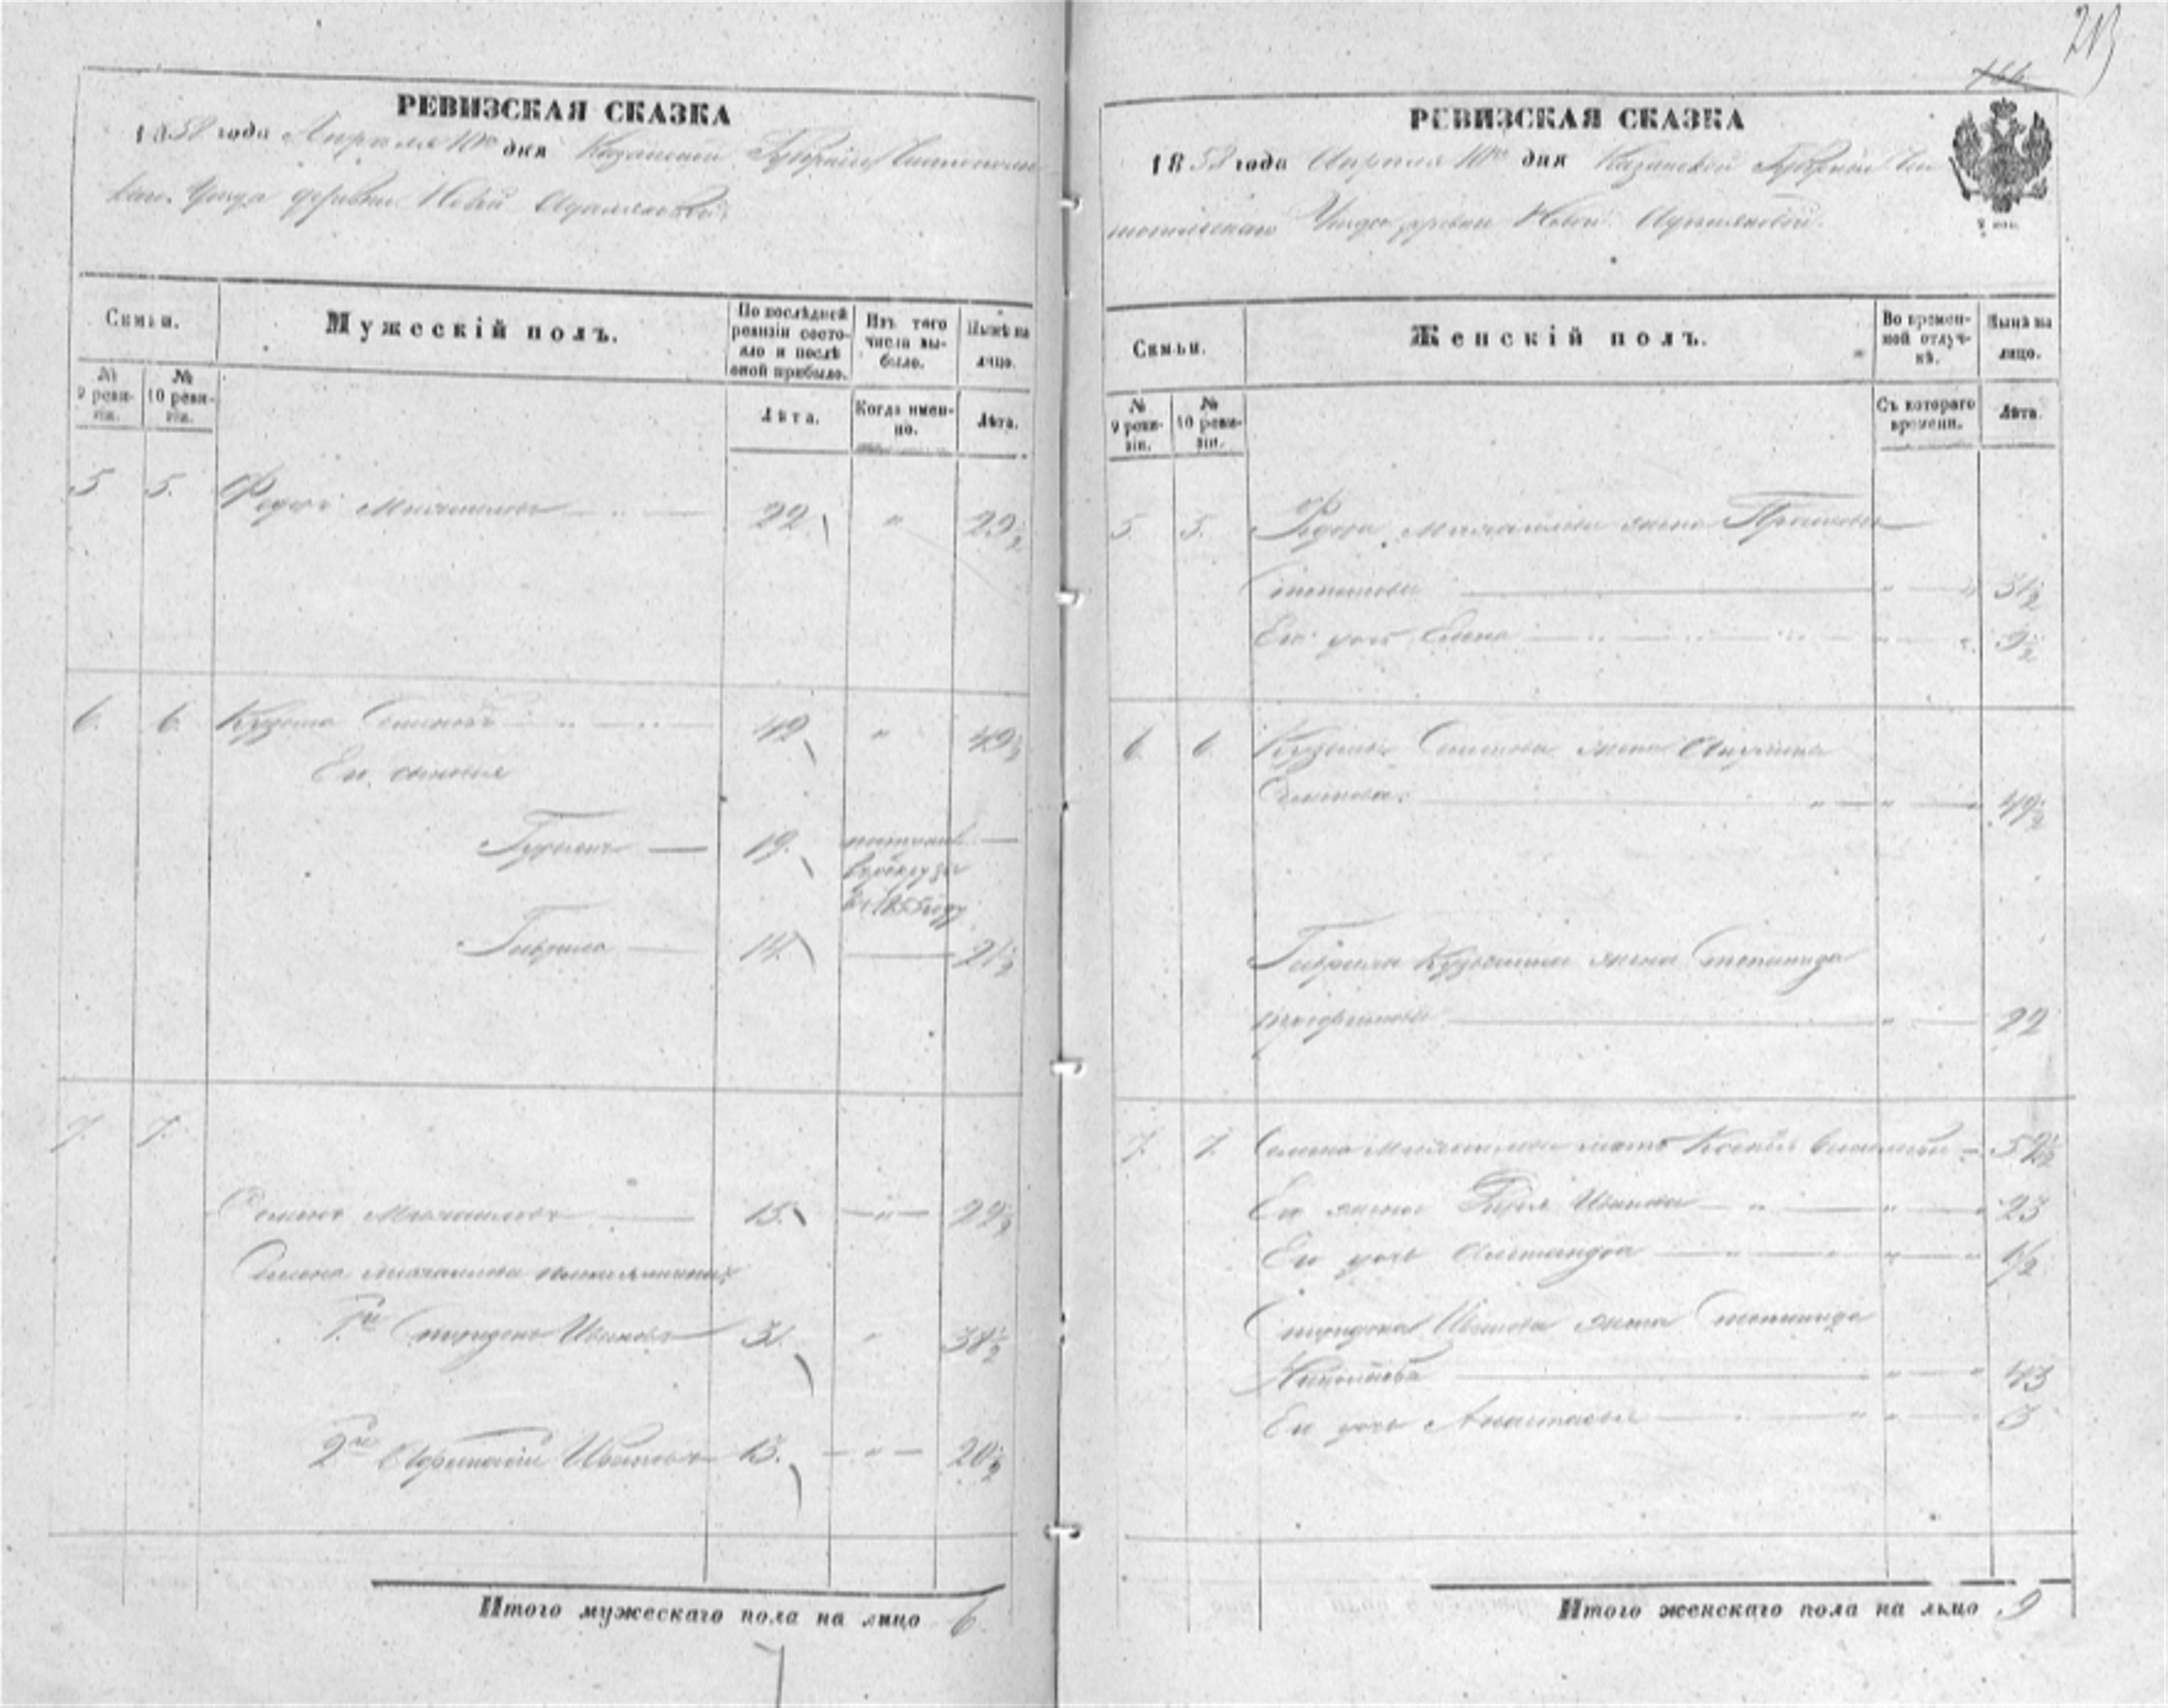 213
166
РЕВИЗСКАЯ СКАЗКА
1858 года Апреля 10го дня Казанской Губернии Чистополь
скаго Уезда деревни Новой
Семьи.
Мужескій полъ.
По послѣдней ревизіи состояло и послѣ оной прибыло.
Изъ того числа выбыло.
Нынѣ на лицо.
№ 9 ревизіи.
№ 10 ревизіи.
Лѣта.
Когда именно.
Лѣта.
5 5. Федоръ Михайловъ 22 " 29½
6. 6. Кузьма Семеновъ 42 " 49½
Его сыновья
19. поступилъ
в рекруты
въ 1855 году
Гаврила 14 21½
7. 7.
Семенъ Михайловъ 15. " 22½
Семена Михайлова племянники
1й Спиридонъ Ивановъ 31. " 38½
2й Афанасій Ивановъ 13. " 20½
Итого мужескаго пола на лицо 6
РЕВИЗСКАЯ СКАЗКА
1858 года Апреля 10го дня Казанской Губернии Чи
стопольскаго Уезда деревни Новой
Семьи.
Женскій полъ.
Во временной отлучкѣ.
Нынѣ на лицо.
№ 9 ревизіи.
№ 10 ревизіи.
Съ котораго времени.
Лѣта.
5. 5. Федора Михайлова жена Прасковья
Степанова " 31½
Его дочь Елена " 9½
6. 6. Кузьмы Семенова жена
" 49½
Гаврилы Кузьмина жена Степанида
" 22
7. 7. Семена Михайлова мать Ксенія 52½
Его жена Ивановa " 23
Его дочь Александра " 1½
Спиридона Иванова жена Степанида
" 43
Его дочь Анастасья " 3
Итого женскаго пола на лицо 9